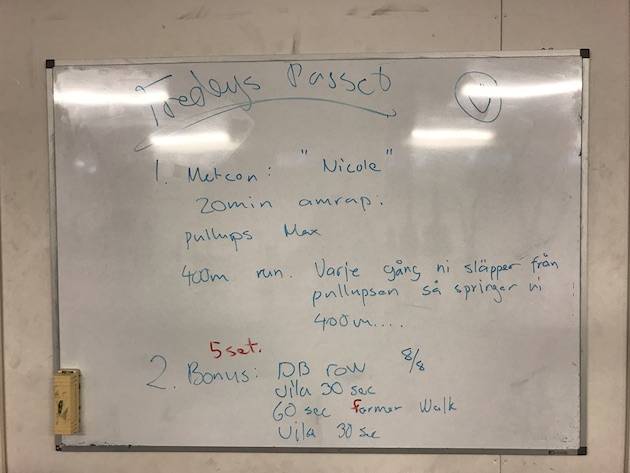 Fredags Passet
1. Metcon: "Nicole"
20min amrap:
pullups Max
400m run. Varje gång ni släpper från
pullupsen så springer ni
400m....
5 set.
2. Bonus: DB row 8/8
vila 30 sec
60 sec farmer Walk
vila 30 sec